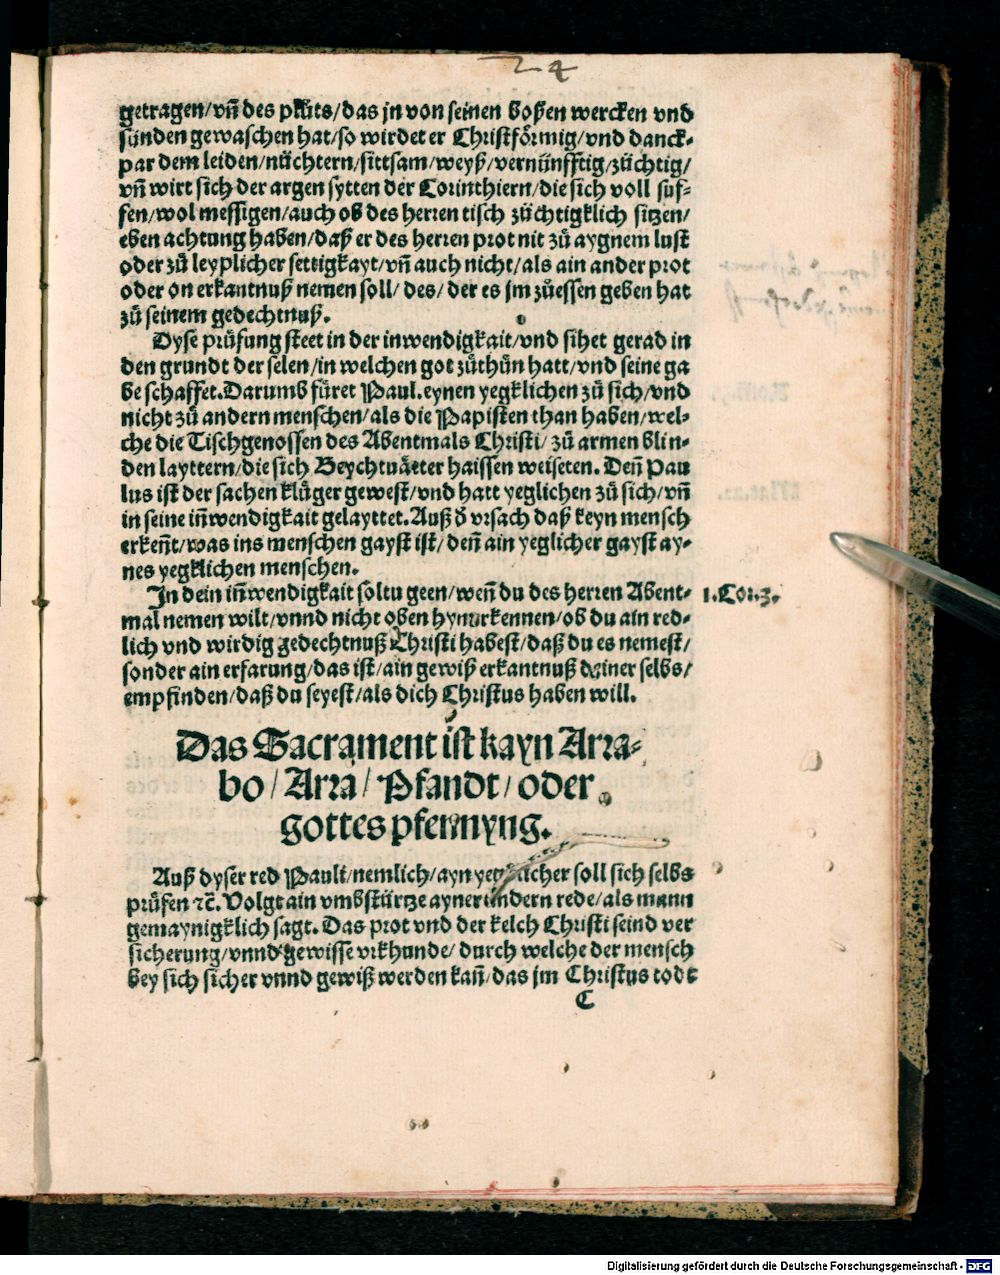 24
getragen/vñ des plůts/das jn von seinen boßen wercken vnd
sünden gewaschen hat/so wirdet er Christförmig/vnd danck-
par dem leiden/nüchtern/sittsam/weyß/vernünfftig/züchtig/
vñ wirt sich der argen sytten der Corinthiern/die sich voll suf-
fen/wol messigen/auch ob des herren tisch züchtigklich sitzen/
eben achtung haben/daß er des herren prot nit zů aygnem lust
oder zů leyplicher settigkayt/vñ auch nicht/als ain ander prot
oder on erkantnuß nemen soll/des/der es jm zůessen geben hat
zů seinem gedechtnuß.
Dyse prüfung steet in der inwendigkait/vnd sihet gerad in
den grundt der selen/in welchen got zůthůn hatt/vnd seine ga
be schaffet. Darumb füret Paul. eynen yegklichen zů sich/vnd
nicht zů andern menschen/als die Papisten than haben/wel-
che die Tischgenossen des Abentmals Christi/zů armen blin-
den layttern/die sich Beychtuätter haissen weiseten. Deñ Pau
lus ist der sachen klůger gewest/vnd hatt yeglichen zů sich/vñ
in seine iñwendigkait gelayttet. Auß ď vrsach daß keyn mensch
erkeñt/was ins menschen gayst ist/deñ ain yeglicher gayst ay-
nes yegklichen menschen.
In dein iñwendigkait soltu geen/weñ du des herren Abent- 1. Cor. 3.
mal nemen wilt/vnnd nicht oben hyn erkennen/ob du ain red-
lich vnd wirdig gedechtnuß Christi habest/daß du es nemest/
sonder ain erfarung/das ist/ain gewiß erkantnuß deiner selbs/
empfinden/daß du seyest/als dich Christus haben will.
Das Sacrament ist kayn Arra-
bo/Arra/Pfandt/oder
gottes pfennyng.
Auß dyser red Pauli/nemlich/ayn yegklicher soll sich selbs
prüfen ꝛc. Volgt ain vmbstürtze ayner andern rede/als mann
gemaynigklich sagt. Das prot vnd der kelch Christi seind ver
sicherung/vnnd gewisse vrkhunde/durch welche der mensch
bey sich sicher vnnd gewiß werden kañ/das jm Christus todt
C
Digitalisierung gefördert durch die Deutsche Forschungsgemeinschaft - DFG